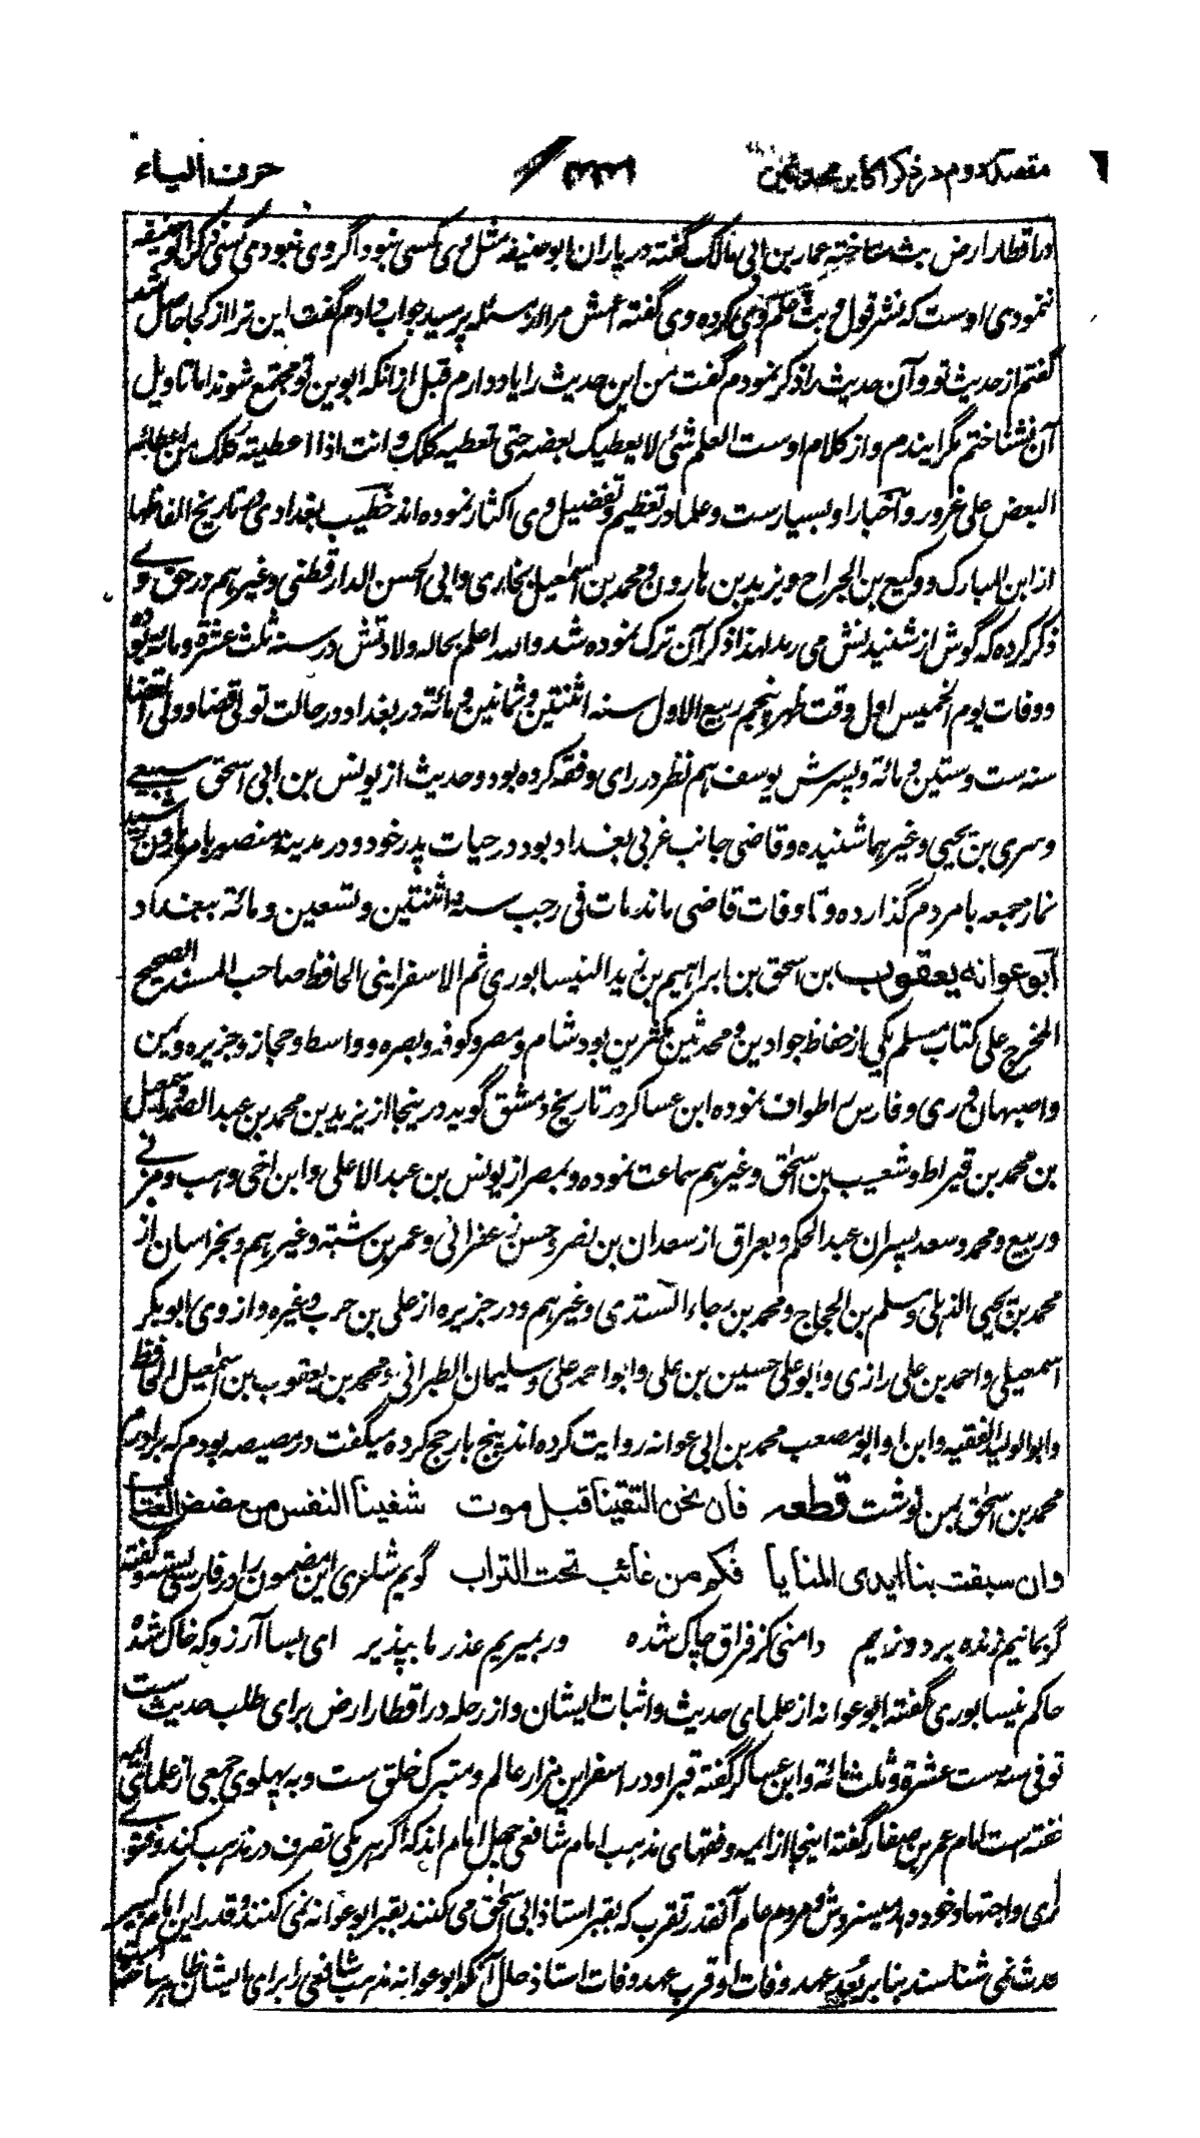 مقصد دوم در ذکر اکابر محدثین ۴۴۳ حرف الیاء
در اقطار ارض بث ساخته عمار بن ابی مالک گفته در یاران ابو حنیفه مثل وی کسی نبود اگر وی نبودی کسی ذکر ابو حنیفه
ننمودی اوست که نشر قول و بث علم وی کرده وی گفته اعمش مرا از مسئله پرسید جواب دادم گفت این ترا از کجا حاصل شد
گفتم از حدیث تو و آن حدیث را ذکر نمودم گفت من این حدیث را یاد دارم قبل از انکه ابوین تو مجتمع شوند اما تاویل
آن نشناختم مگر ایندم و از کلام اوست العلم شئ لا یعطیک بعضه حتی تعطیه کلک و انت اذا اعطیته کلک من اعطائه
البعض علی غرور و اخبار او بسیارست و علما در تعظیم و تفضیل وی اکثار نموده اند خطیب بغدادی در تاریخ الفاظها
از ابن المبارک و وکیع بن الجراح و یزید بن هارون و محمد بن اسمٰعیل بخاری و ابی الحسن الدارقطنی و غیرهم در حق وے
ذکر کرده که گوش از شنیدنش می رمد لهذا ذکر آن ترک نموده شد والله اعلم بحاله ولادتش در سنه ثلث عشرة و مائة بوده
و وفات یوم الخمیس اول وقت ظهر پنجم ربیع الاول سنه اثنتین و ثمانین و مائة در بغداد در حالت تولی قضا و ولی القضا
سنه ست و ستین و مائة و پسرش یوسف هم نظر در رای و فقه کرده بود و حدیث از یونس بن ابی اسحق سبیعے
و سری بن یحیی و غیرهما شنیده و قاضی جانب غربی بغداد بود در حیات پدر خود و در مدینة منصور بامر هارون رشید
نماز جمعه با مردم گذارده و تا وفات قاضی ماند مات فی رجب سنة اثنتین و تسعین و مائة ببغداد
ابو عوانه یعقوب بن اسحق بن ابراهیم بن یزید النیسابوری ثم الاسفراینی الحافظ صاحب المسند الصحیح
المخرج علی کتاب مسلم یکی از حفاظ جوادین و محدثین مکثرین بود شام و مصر و کوفه و بصره و واسط و حجاز و جزیره و یمن
و اصبهان و ری و فارس را طواف نموده ابن عساکر در تاریخ دمشق گوید درینجا از یزید بن محمد بن عبد الصمد و اسمعیل
بن محمد بن قیراط و شعیب بن اسحٰق و غیرهم سماعت نموده و بمصر از یونس بن عبد الاعلی و ابن اخی وهب و مزنے
و ربیع و محمد و سعد پسران عبد الحکم و بعراق از سعدان بن نصر و حسن زعفرانی و عمر بن شبته و غیرهم و بخراسان از
محمد بن یحیی الذهلی و مسلم بن الحجاج و محمد بن رجاء السندی و غیرهم و در جزیره از علی بن حرب و غیره و از وی ابو بکر
اسمعیلی و احمد بن علی رازی و ابو علی حسین بن علی و ابو احمد علی و سلیمان الطبرانی و محمد بن یعقوب بن اسمٰعیل الحافظ
و ابو الولید الفقیه و ابن او ابو مصعب محمد بن ابی عوانه روایت کرده اند پنج بار حج کرده میگفت در مصیصه بودم که برادرم
محمد بن اسحٰق بمن نوشت قطعه فان نحن التقینا قبل موت شفینا النفس من مضض العتاب
وان سبقت بنا ایدی المنایا فکم من غائب تحت التراب گویم شاعری این مضمون را در فارسی بسته و گفته
گر بمانیم زنده بر دوزیم دامنی کز فراق چاک شده ور بمیریم عذر ما بپذیر ای بسا آرزو که خاک شده
حاکم نیسابوری گفته ابو عوانه از علمای حدیث و اثبات ایشان و از رحله در اقطار ارض برای طلب حدیث ست
توفی سنه ست عشرة و ثلثمائة و ابن عساکر گفته قبر او در اسفراین مزار عالم و متبرک خلق ست و به پهلوی جمعی از علمای ائمه
خفته ست امام عمر بن صفار گفته اینجا از ایمه و فقهای مذهب امام شافعی چهل امام اند که اگر هر یکی تصرف در مذهب کند و فتوے
رای و اجتهاد خود دهد میسزدش و مردم عام آنقدر تقرب که بقبر استاذ ابی اسحٰق می کنند بقبر ابو عوانه نمی کنند و قدر این امام کبیر
محدث نمی شناسند بنا بر بعد عهد وفات او قرب عهد وفات استاذ حال آنکه ابو عوانه مذهب شافعی را برای ایشان ظاهر ساخته